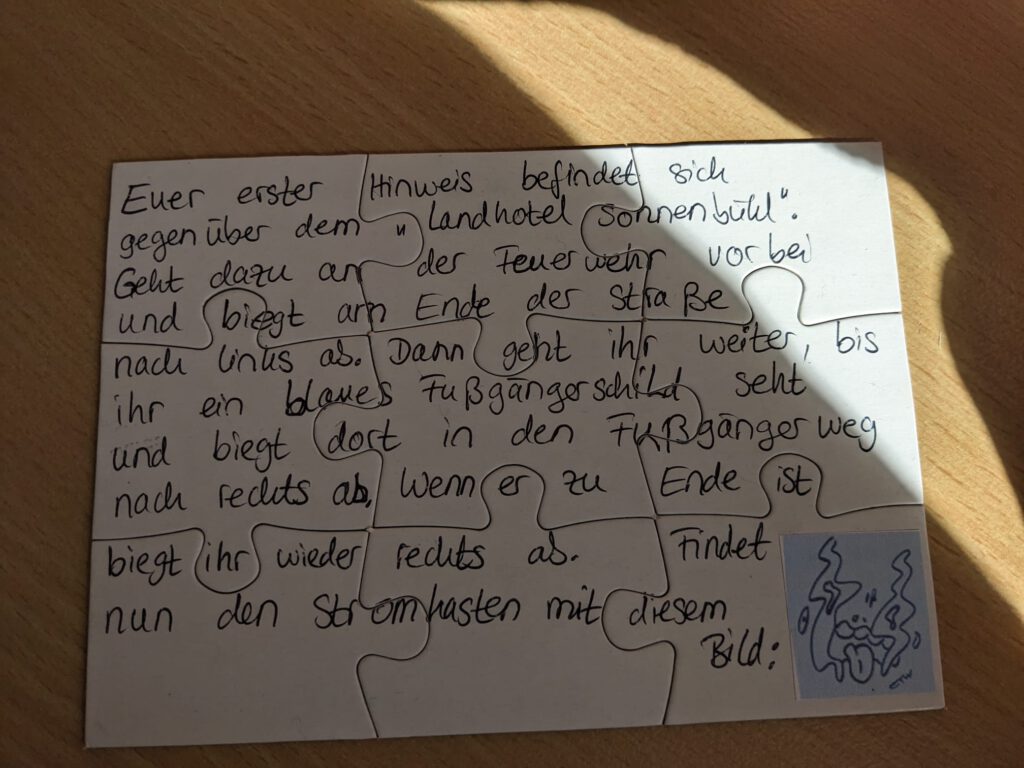 Euer erster Hinweis befindet sich
gegenüber dem „Landhotel Sonnenbühl".
Geht dazu an der Feuerwehr vorbei
und biegt am Ende der Straße
nach links ab. Dann geht ihr weiter, bis
ihr ein blaues Fußgängerschild seht
und biegt dort in den Fußgängerweg
nach rechts ab. Wenn er zu Ende ist
biegt ihr wieder rechts ab. Findet
nun den Stromkasten mit diesem
Bild: